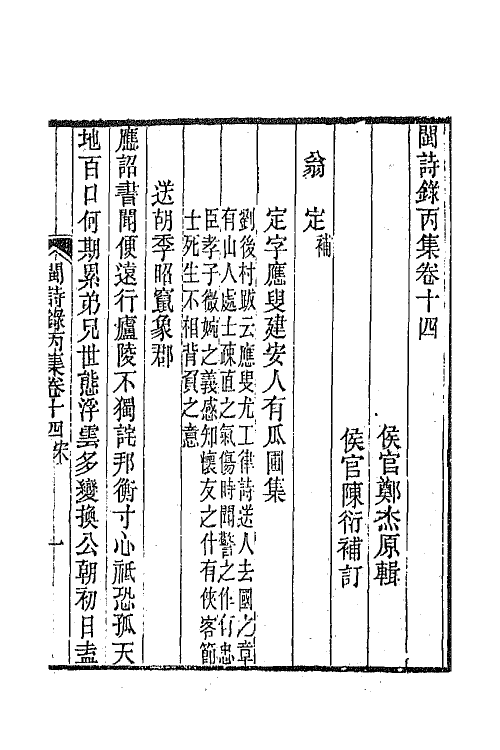 閩詩錄丙集卷十四
侯官鄭杰原輯
侯官陳衍補訂
翁定補
定字應叟建安人有瓜圃集
劉後村跋云應叟尤工律詩送人去國之章
有山人處士疎直之氣傷時聞警之作有忠
臣孝子微婉之義感知懷友之什有俠客節
士死生不相背負之意
送胡季昭竄象郡
應詔書聞便遠行廬陵不獨詫邦衡寸心祇恐孤天
地百口何期累弟兄世態浮雲多變換公朝初日盍
閩詩錄丙集卷十四宋
一